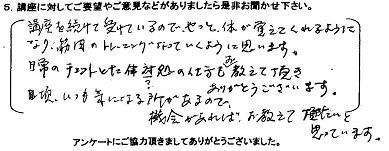 5. 講座に対してご要望やご意見などがありましたら是非お聞かせ下さい。
講座を続けて受けているので、やっと、体が覚えてくれるように
なり、筋肉のトレーニングになっていくように思います。
日常のチョットした体対処の仕方も教えて頂き
ありがとうございます。
日頃、いつも気になる所があるので、
機会があれば、お教えて頂きたいと
思っています。
アンケートにご協力頂きましてありがとうございました。